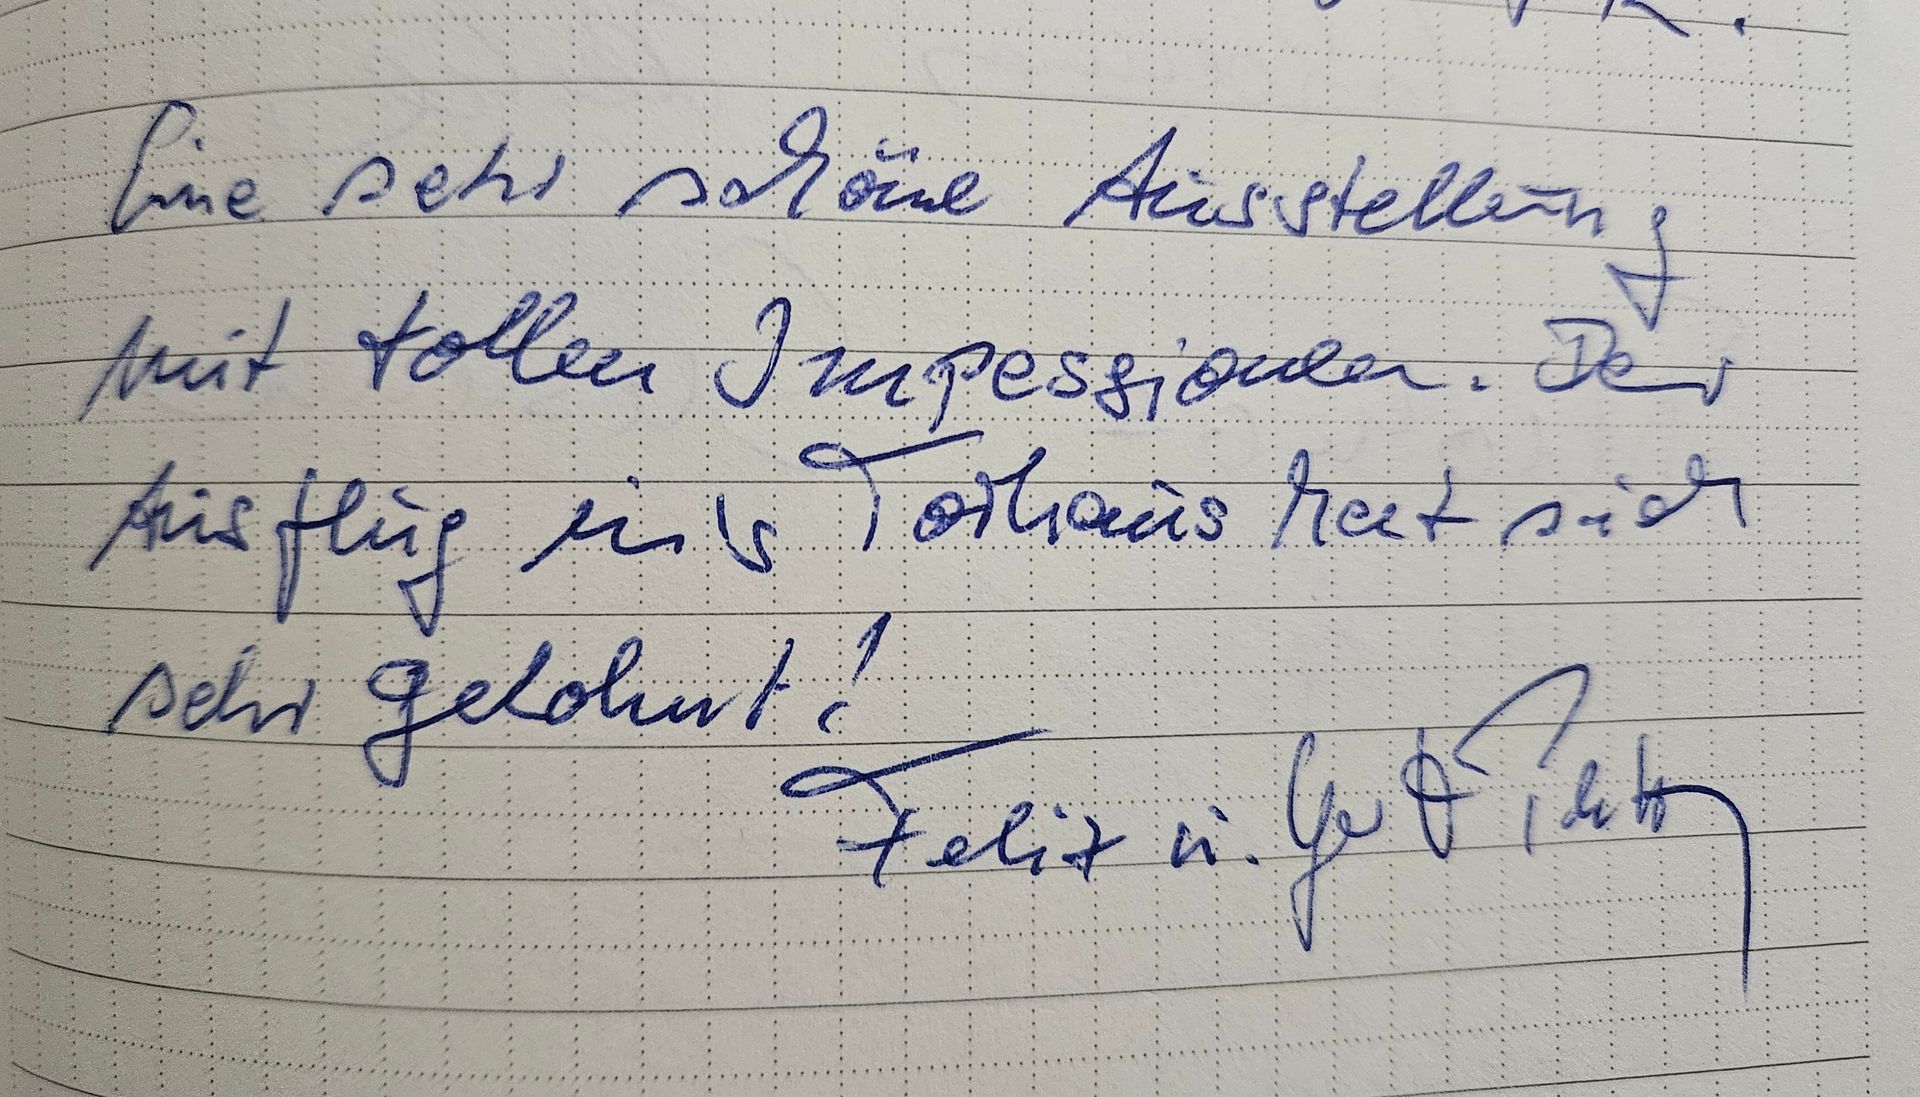 Eine sehr schöne Ausstellung
mit tollen Impessionen. Der
Ausflug in's Torhaus hat sich
sehr gelohnt!
Felix u. Gerd